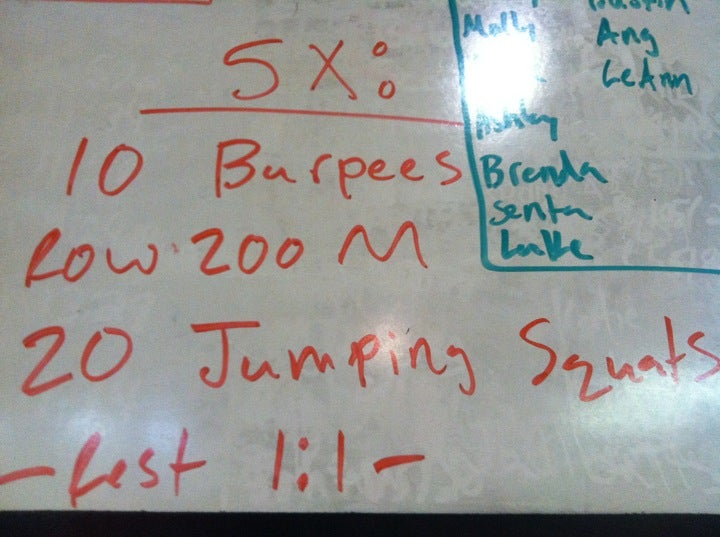 5 X:
10 Burpees
Row 200 M
20 Jumping Squats
- Rest 1:1 -
Molly
Ashley
Brenda
Senta
Luke
Ang
LeAnn